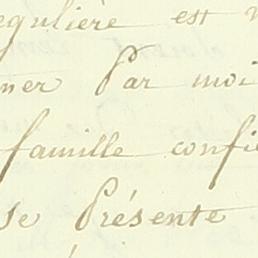 egulière est
ner Par moi
famille confié
se Présente